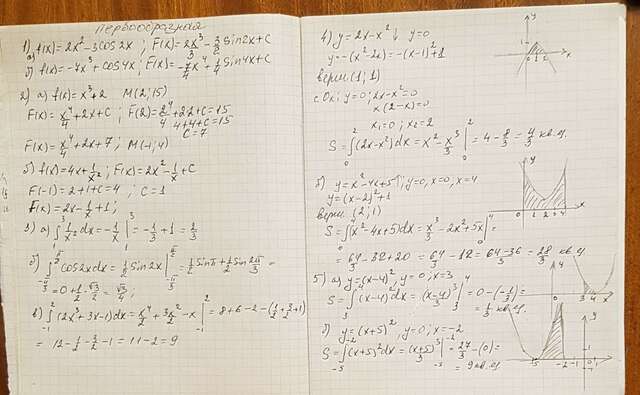 Первообразная
1) а) f(x) = 2x² - 3cos2x ; F(x) = 2x³/3 - 3/2 sin2x + C
б) f(x) = -7x³ + cos4x ; F(x) = -7/4 x⁴ + 1/4 sin4x + C
2) а) f(x) = x³ + 2 M(2; 15)
F(x) = x⁴/4 + 2x + C ; F(2) = 2⁴/4 + 2·2 + C = 15
4 + 4 + C = 15
C = 7
F(x) = x⁴/4 + 2x + 7 ; M(-1; 4)
б) f(x) = 4x + 1/x² ; F(x) = 2x² - 1/x + C
F(-1) = 2 + 1 + C = 4 , C = 1
F(x) = 2x - 1/x + 1 ;
3) а) ∫₁³ 1/x² dx = -1/x |₁³ = -1/3 + 1 = 2/3
cos2x dx = 1/2 sin2x = 1/2 sinπ + 1/2 sin 2π/3 =
= 0 + 1/2 · √3/2 = √3/4 ;
в) ∫₋₁² (2x³ + 3x - 1) dx = x⁴/2 + 3x²/2 - x |₋₁² = 8 + 6 - 2 - (1/2 + 3/2 + 1)
= 12 - 1/2 - 3/2 - 1 = 11 - 2 = 9
4) y = 2x - x² ↓ y = 0
y = -(x² - 2x) = -(x - 1)² + 1
верш. (1; 1)
с Ox: y = 0 ; 2x - x² = 0
x(2 - x) = 0
x₁ = 0 ; x₂ = 2
S = ∫₀² (2x - x²) dx = x² - x³/3 |₀² = 4 - 8/3 = 4/3 кв.ед.
б) y = x² - 4x + 5 ; y = 0, x = 0, x = 4
y = (x - 2)² + 1
верш. (2; 1)
S = ∫₀⁴ (x² - 4x + 5) dx = x³/3 - 2x² + 5x |₀⁴ =
= 64/3 - 32 + 20 = 64/3 - 12 = 64 - 36/3 = 28/3 кв.ед.
5) а) y = (x - 4)², y = 0, x = 3
S = ∫₃⁴ (x - 4)² dx = (x - 4)³/3 |₃⁴ = 0 - (-1/3) =
= 1/3 кв.ед.
б) y = (x + 5)², y = 0, x = -2
S = ∫₋₅⁻² (x + 5)² dx = (x + 5)³/3 |₋₅⁻² = 27/3 - (0) =
= 9 кв.ед.